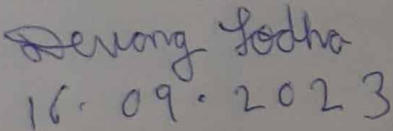 Devang Lodha
16.09.2023